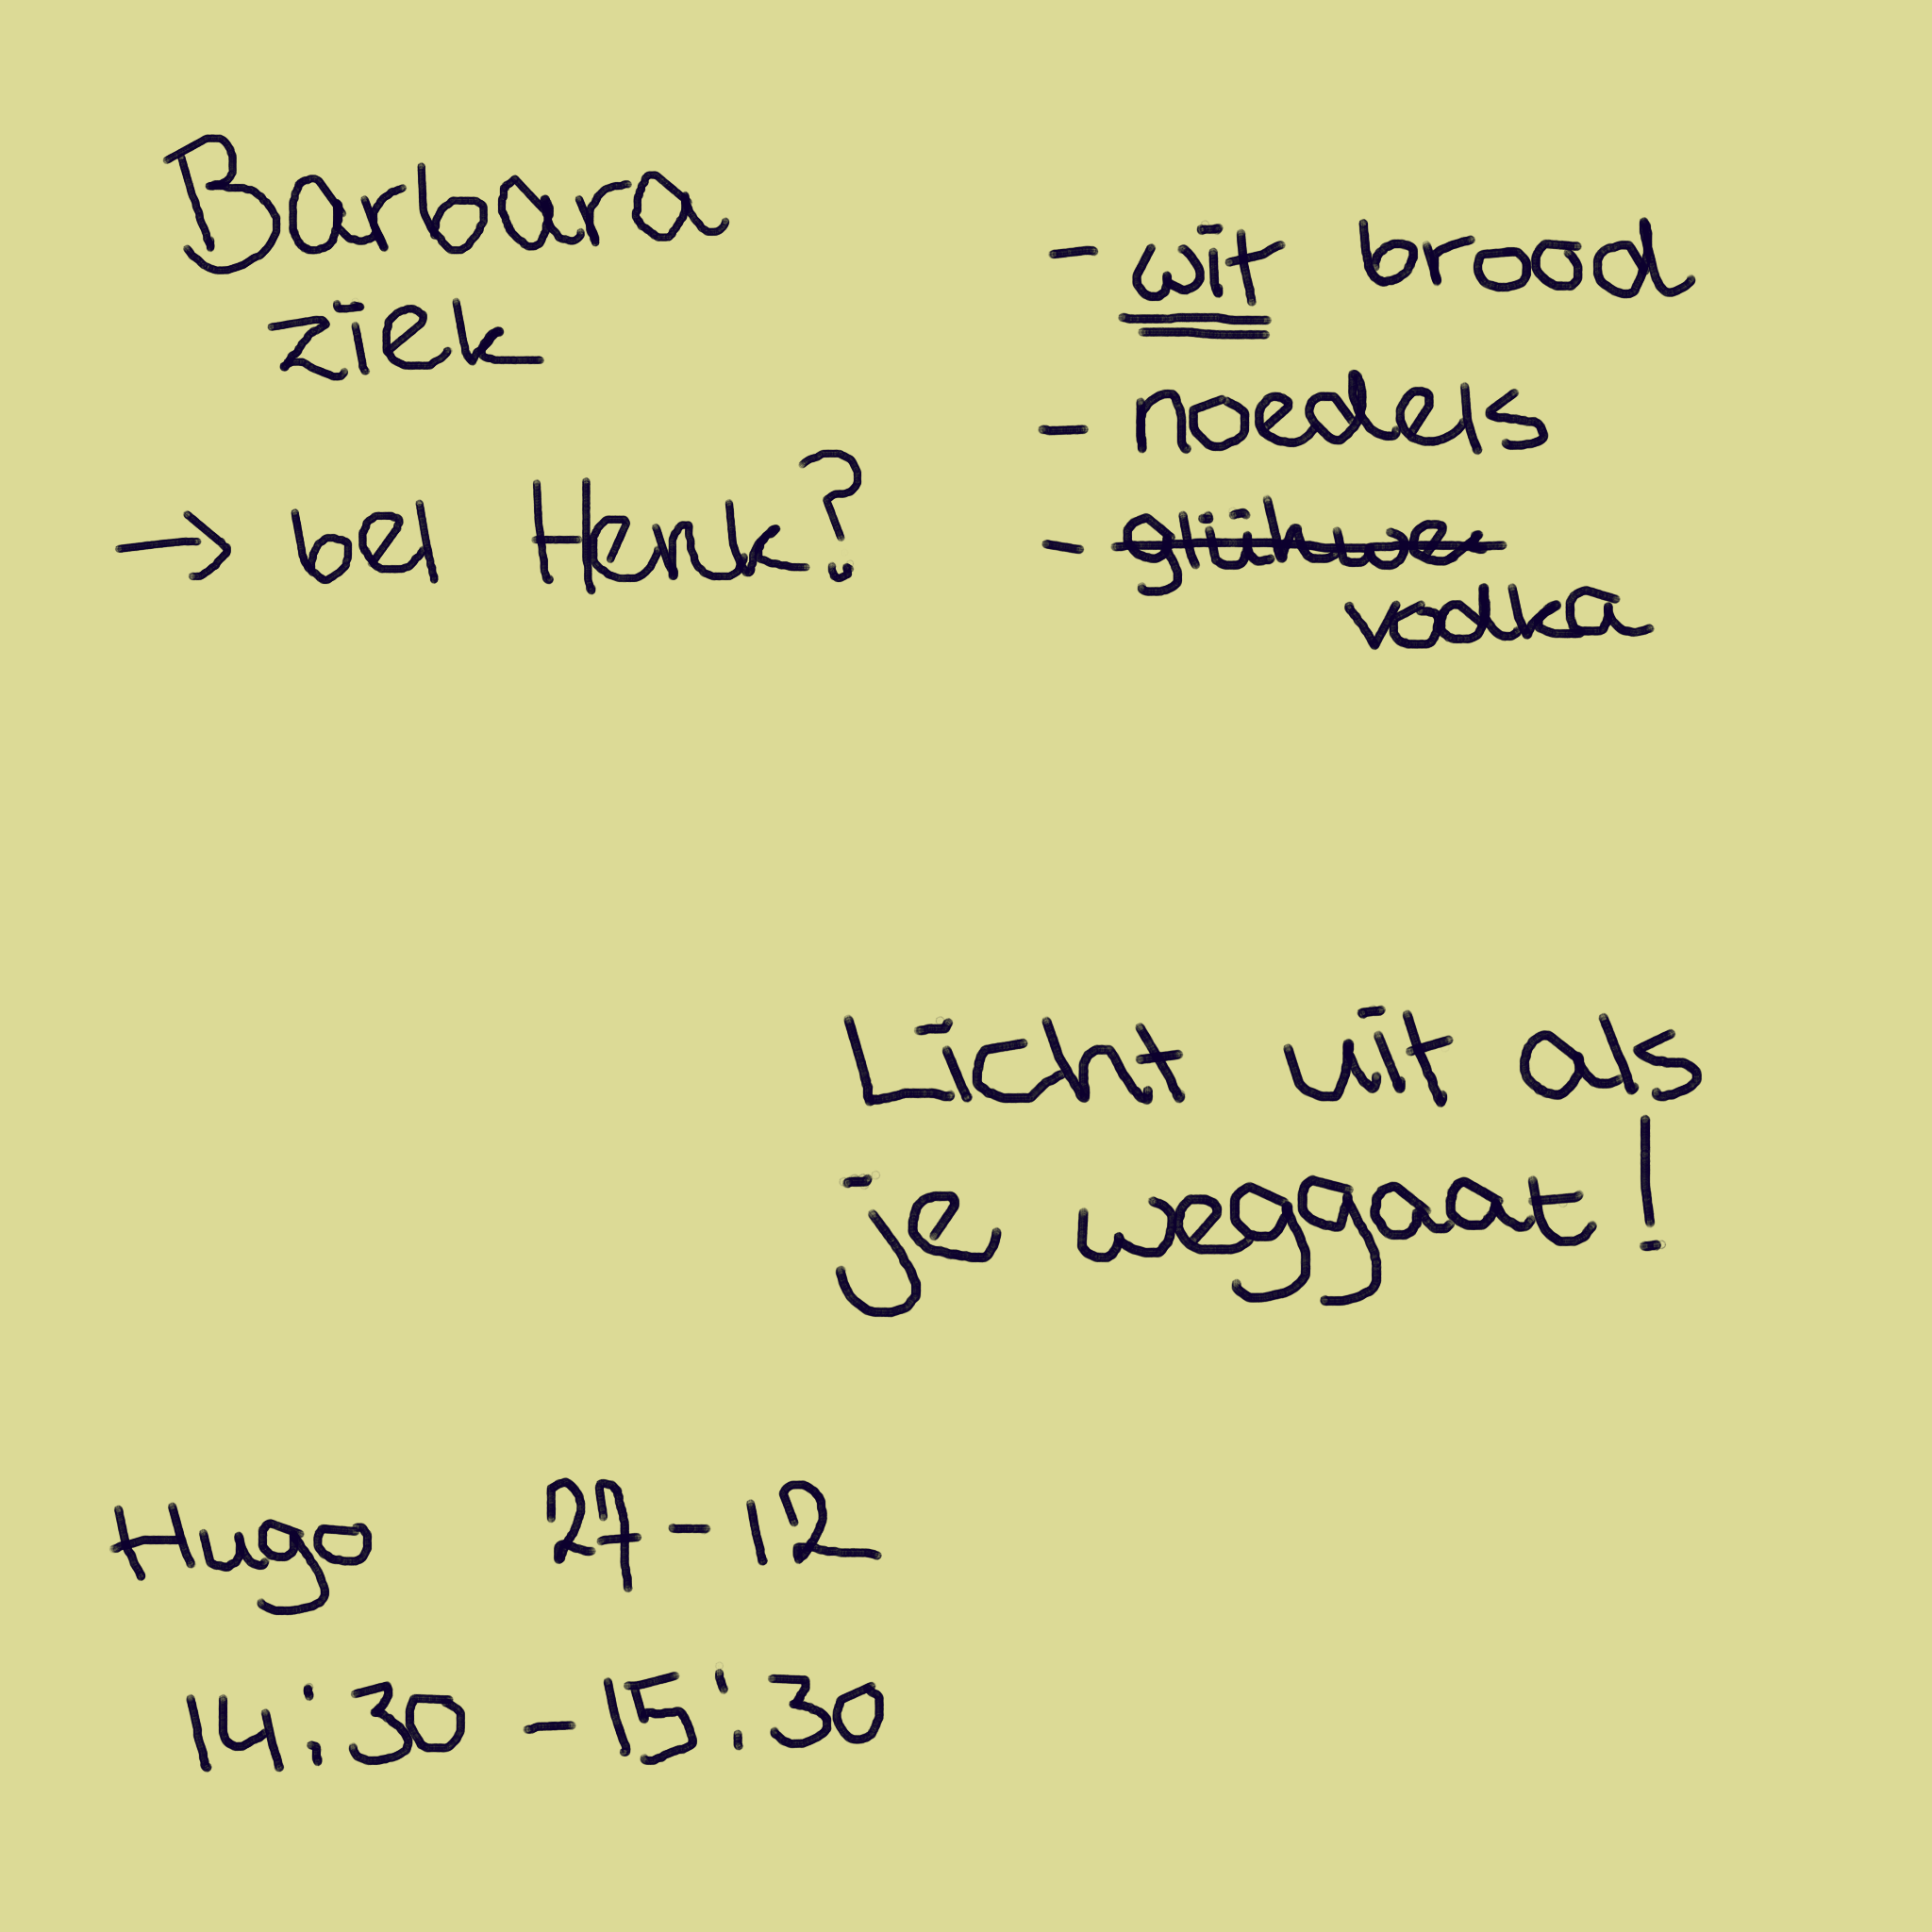 Barbara
ziek
→ bel Henk?
- wit brood
- noedels
- glühwein
vodka
Licht uit als
je weggaat!
Hugo 27-12
14:30 - 15:30